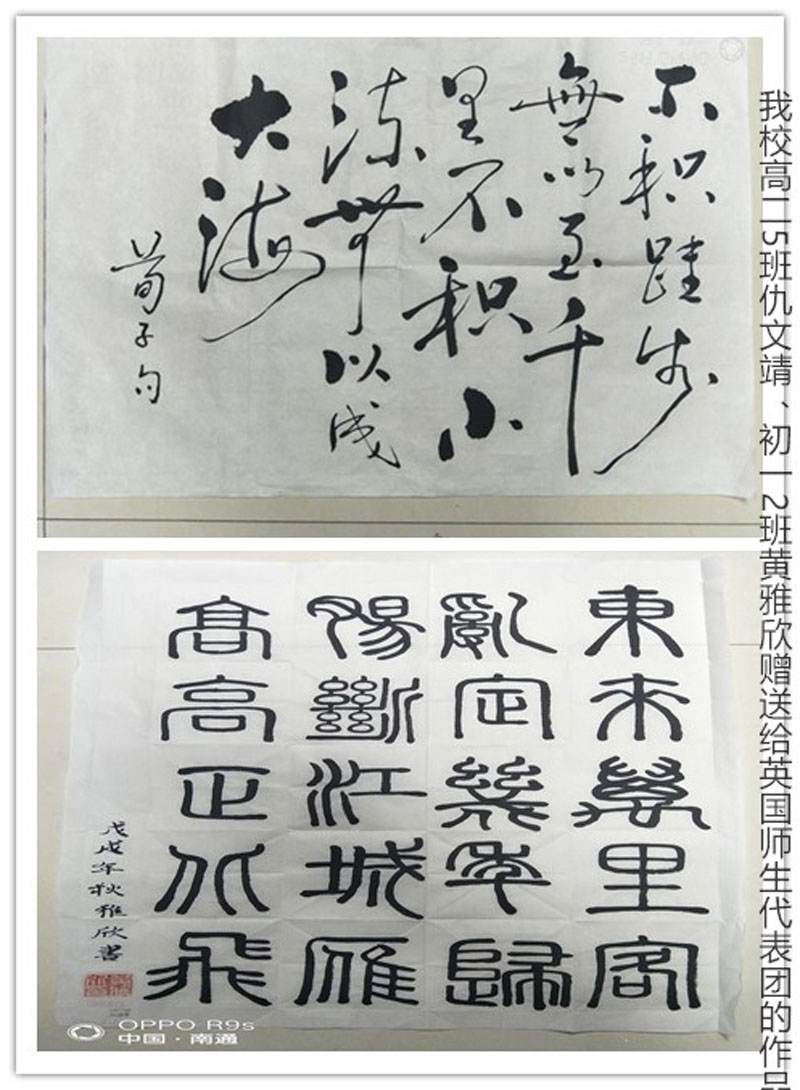 不积跬步
無以至千
里不积小
流無以成
大海
荀子句
東來萬里客
亂定幾年歸
腸斷江城雁
高高正北飛
戊戌年秋雅欣書
OPPO R9s
中国·南通
我校高115班仇文靖、初12班黄雅欣赠送给英国师生代表团的作品